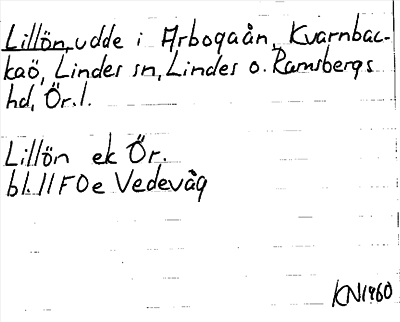 Lillön, udde i Arbogaån, Kvarnbac-
kaö, Lindes sn, Lindes o. Ramsbergs
hd, Ör. l.
Lillön ek Ör.
bl. 11F0e Vedevåg
KN1960